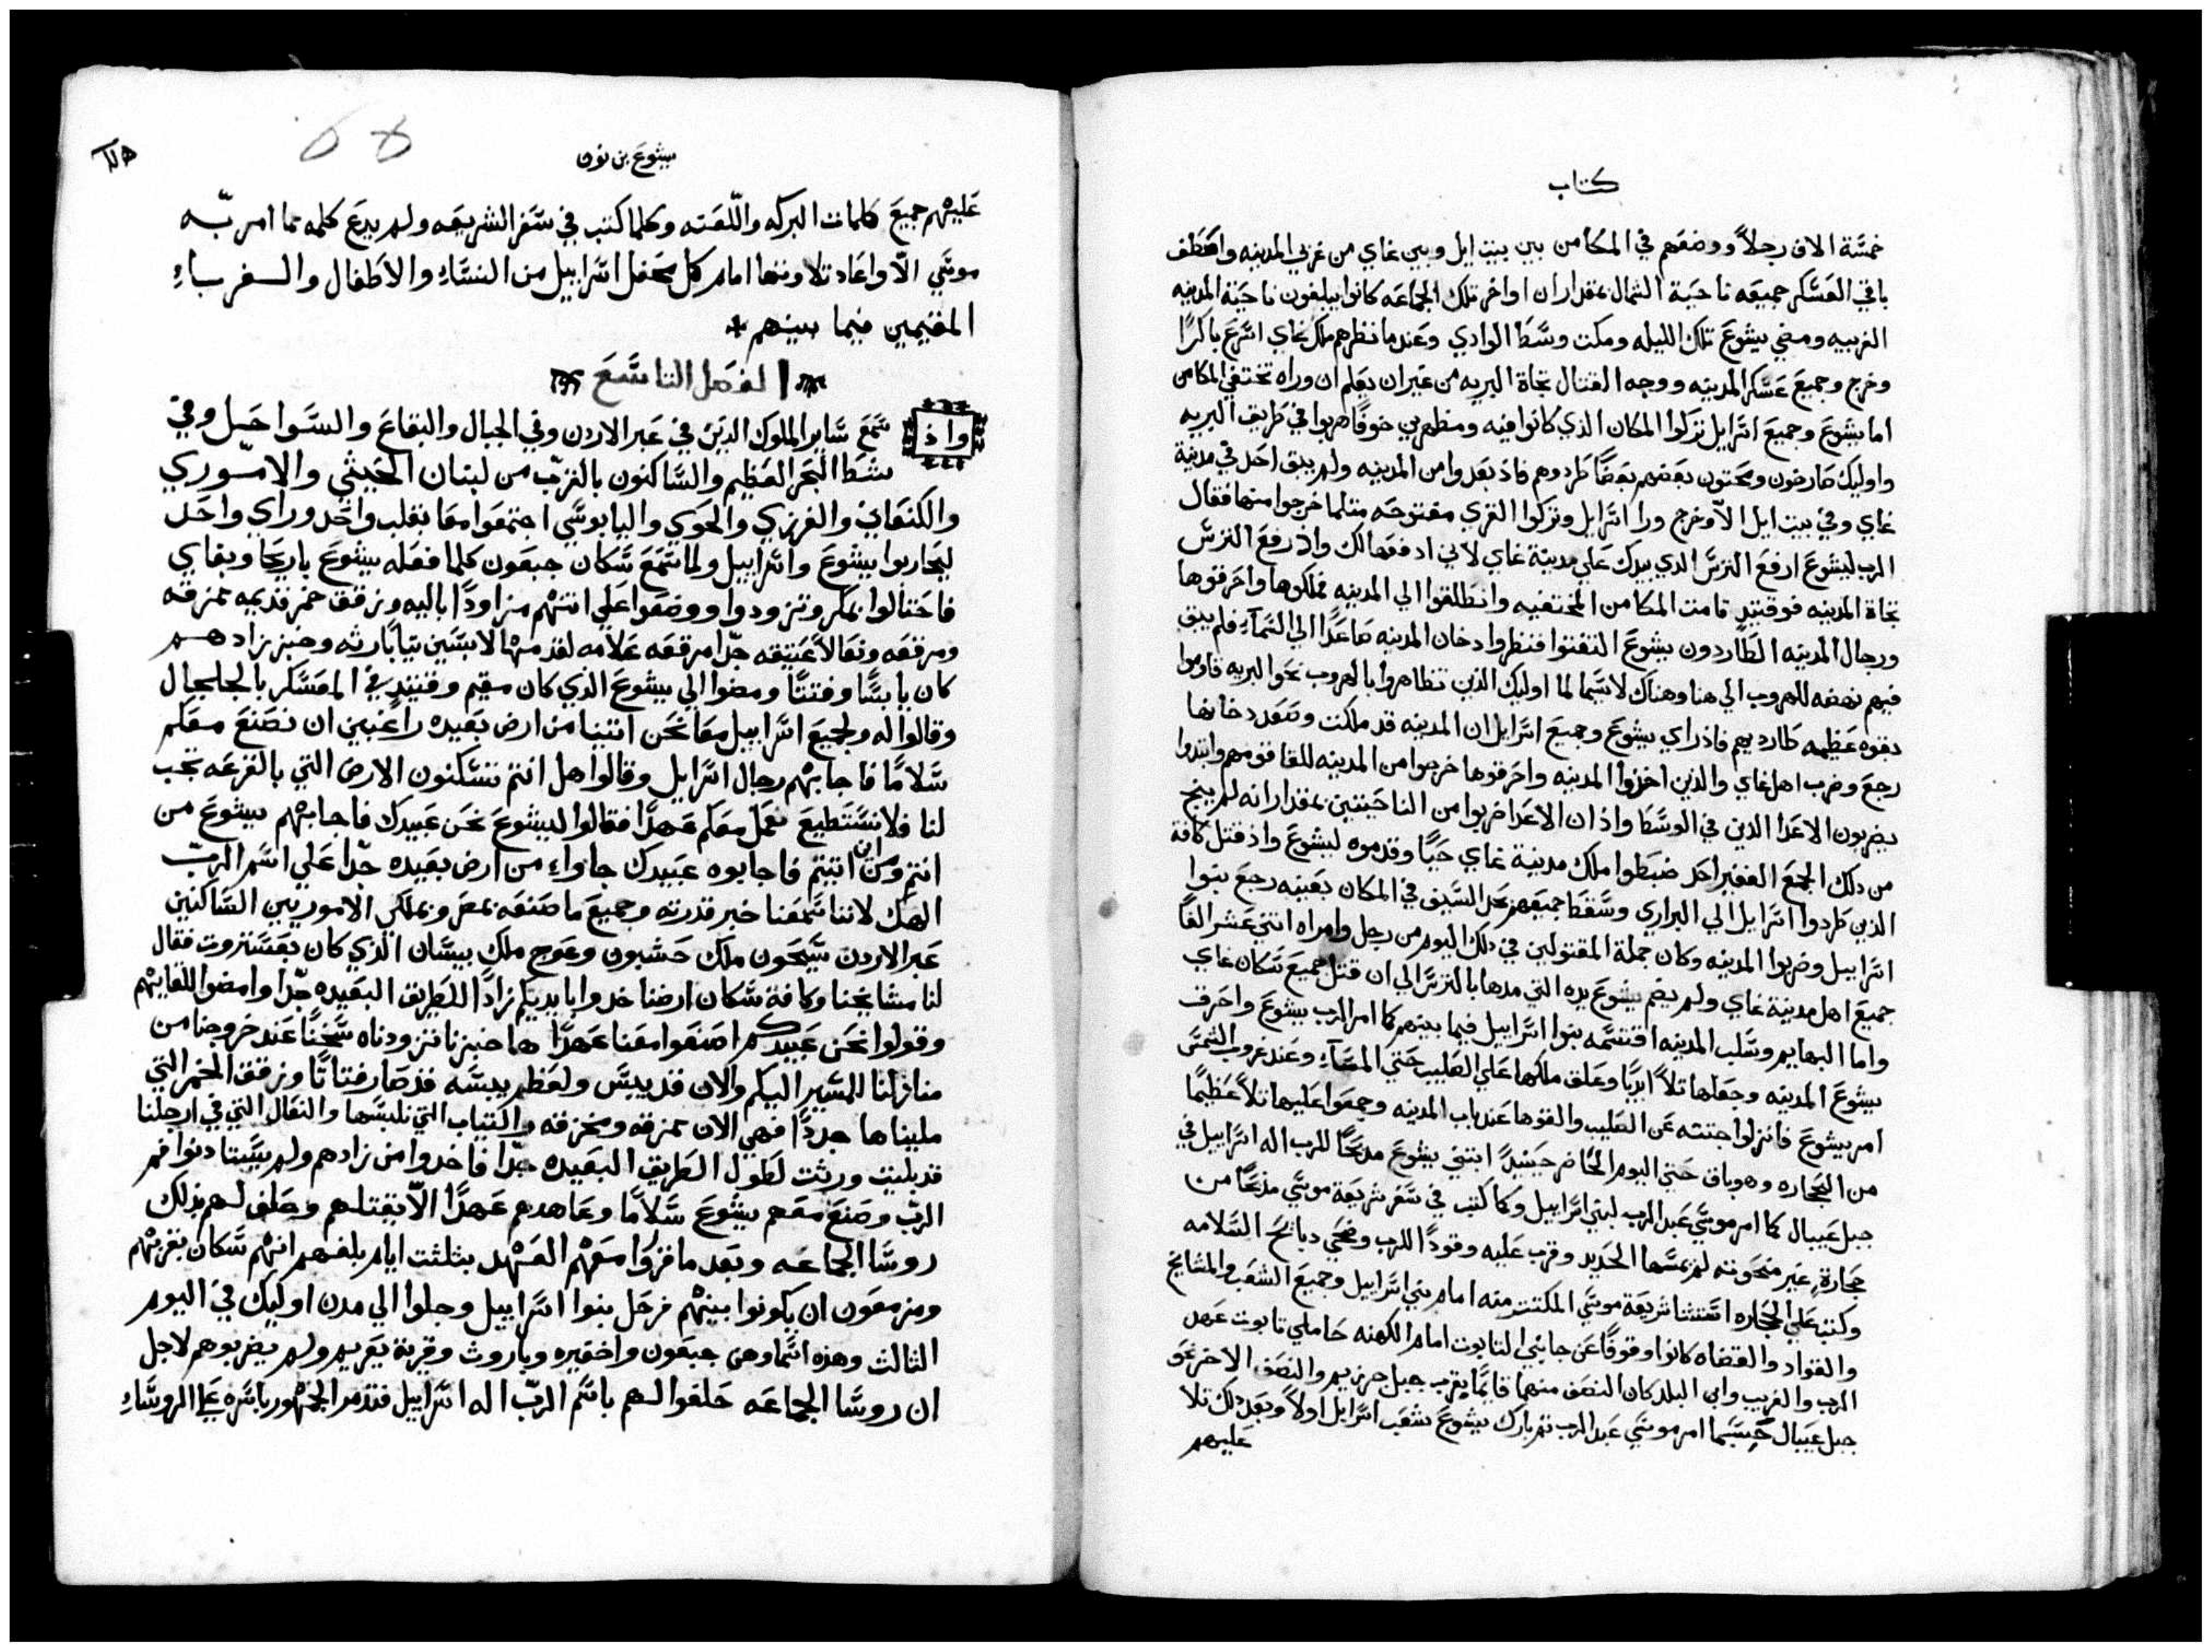 كتاب
خمسة الاف رجلاً ووضعهم في المكامن بين بيت ايل وبين غاي من غربي المدينه واصطف
باقي العسكر جميعه ناحية الشمال بمقدار ان اواخر تلك الجماعه كانوا يبلغون ناحية المدينه
الغربيه ومضي يشوع تلك الليله ومكث وسط الوادي وعندما نظرهم ملك غاي اسرع باكرًا
وخرج وجميع عسكر المدينه ووجه القتال تجاة البريه من غير ان يعلم ان وراه تختفي المكامن
اما يشوع وجميع اسرايل تركوا المكان الذي كانوا فيه ومظهرين خوفًا هربوا في طريق البريه
واوليك صارخون ومحتون بعضهم بعضًا طردوهم فاذ بعدوا من المدينه ولم يبق احد في مدينة
غاي وفي بيت ايل الاّ وخرج ورا اسرايل وتركوا القري مفتوحه مثلما خرجوا منها فقال
الرب ليشوع ارفع الترس الذي بيدك علي مدينة غاي لاني ادفعها لك واذ رفع الترس
تجاة المدينه فوقتيدٍ قامت المكامن المختفيه وانطلقوا الي المدينه فملكوها واحرقوها
ورجال المدينه الطاردون يشوع التفتوا فنظروا دخان المدينه صاعدًا الي السمآء فلم يبق
فيهم نهضه للهروب الي هنا وهناك لاسيما لما اوليك الذين تظاهروا بالهروب نحو البريه قاوموا
بقوه عظيمه طارديهم فاذ راي يشوع وجميع اسرايل ان المدينه قد ملكت وصعد دخانها
رجع وضرب اهل غاي والذين اخذوا المدينه واحرقوها خرجوا من المدينه للقا قومهم وابتدوا
يضربون الاعدا الذين في الوسط واذ ان الاعدا ضربوا من الناحيتين بمقدار انه لم ينج
من ذلك الجمع الغفير احد ضبطوا ملك مدينة غاي حيًا وقدموه ليشوع واذ قتل كافة
الذين طردوا اسرايل الي البراري وسقطا جميعهم بحد السيف في المكان بعينه رجع بنوا
اسراييل وضربوا المدينه وكان جملة المقتولين في ذلك اليوم من رجل وامراه اثني عشر الفًا
جميع اهل مدينة غاي ولم يضم يشوع يده التي مدها بالترس الي ان قتل جميع سكان غاي
واما البهايم وسلب المدينه اقتسمه بنوا اسراييل فيما بينهم كما امر الرب يشوع واحرق
يشوع المدينه وجعلها تلاً ابديًا وعلق ملكها علي الصليب حتي المسآء وعند غروب الشمس
امر يشوع فانزلوا جثته عن الصليب والقوها عند باب المدينه وجمعوا عليها تلاً عظيمًا
من الحجاره وهو باق حتي اليوم الحاضر حينيذٍ ابتني يشوع مذبحًا للرب اله اسراييل في
جبل عيبال كما امر موسي عبد الرب لبني اسراييل وكما كتب في سفر شريعة موسي مذبحًا من
حجارةٍ غير منحوته لم يمسها الحديد وقرب عليه وقودًا للرب وضحي دبايح السلامه
وكتب علي الحجاره استثنا شريعة موسي المكتتب منه امام بني اسراييل وجميع الشعب والمشايخ
والقواد والقضاه كانوا وقوفًا عن جانبي التابوت امام الكهنه حاملي تابوت عهد
الرب والغريب وابن البلد كان النصف منهما قايمًا بقرب جبل جرزيم والنصف الاخر نحو
جبل عيبال حسبما امر موسي عبد الرب ثم بارك يشوع شعب اسرايل اولاً وبعد ذلك تلا
عليهم
يشوع بن نون
68
عليهم جميع كلمات البركه واللعنه وكلما كتب في سفر الشريعه ولم يدع كلمه مما امر به
موسي الاّ واعاد تلاوتها امام كل محفل اسراييل من النساءِ والاطفال والـغرباءِ
المقيمين فيما بينهم *
الفصل التاسع
واذ سمع ساير الملوك الذين في عبر الاردن وفي الجبال والبقاع والسواحل وفي
شط البحر العظيم والساكنون بالقرب من لبنان الحيثي والاموري
والكنعاني والفرزي والحوي واليابوسي اجتمعوا معا بقلب واحد وراي واحد
ليحاربوا يشوع واسراييل ولما سمع سكان جبعون كلما فعله يشوع باريحا وبغاي
فاحتالوا بمكر وتزودوا ووضعوا علي اتنهم مزاودًا باليه وزقق خمر قديمه ممزقه
ومرقعه ونعالاً عتيقه جدًا مرقعه علامه لقدمها لابسين ثيابًا رثه وخبز زادهم
كان يابسًا وفتتًا ومضوا الي يشوع الذي كان مقيم وقتيذٍ في المعسكر بالجلجال
وقالوا له ولجميع اسراييل معا نحن اتينا من ارض بعيده راغبين ان نصنع معكم
سلامًا فاجابهم رجال اسرايل وقالوا هل انتم تسكنون الارض التي بالقرعه تجب
لنا فلا نستطيع نعمل معكم عهدًا فقالوا ليشوع نحن عبيدك فاجابهم يشوع من
انتم ومن اين اتيتم فاجابوه عبيدك جاوا من ارض بعيده جدًا علي اسم الرب
الهك لاننا سمعنا خبر قدرته وجميع ما صنعه بمصر وبملكي الاموريين الساكنين
عبر الاردن سيحون ملك حشبون وعوج ملك بيسان الذي كان بعستروت فقال
لنا مشايخنا وكافة سكان ارضنا خدوا بايديكم زادًا للطريق البعيده جدًا وامضوا للقايهم
وقولوا نحن عبيدكم اصنعوا معنا عهدًا ها خبزنا تزودناه سخنًا عند خروجنا من
منازلنا للمسير اليكم والان قد يبس ولعظم يبسه قد صار فتاتًا وزقق الخمر التي
مليناها جددًا فهي الان ممزقه ومخزقه والثياب التي نلبسها والنعال التي في ارجلنا
قد بليت ورثت لطول الطريق البعيده جدًا فاخدوا من زادهم ولم يستادنوا فم
الرب وصنع معهم يشوع سلامًا وعاهدهم عهدًا الاّ يقتلهم وحلف لهم بذلك
روسا الجماعه وبعد ما قرَّوا معهم العهد بثلثت ايام بلغهم انهم سكان بقربهم
ومزمعون ان يكونوا بينهم فرحل بنوا اسراييل وجلوا الي مدن اوليك في اليوم
الثالث وهذه اسماوهن جبعون واخفيره وباروث وقرية يعريم ولم يضربوهم لاجل
ان روسا الجماعه حلفوا لهم باسم الرب اله اسراييل فتذمر الجمهور باسره علي الروساءِ